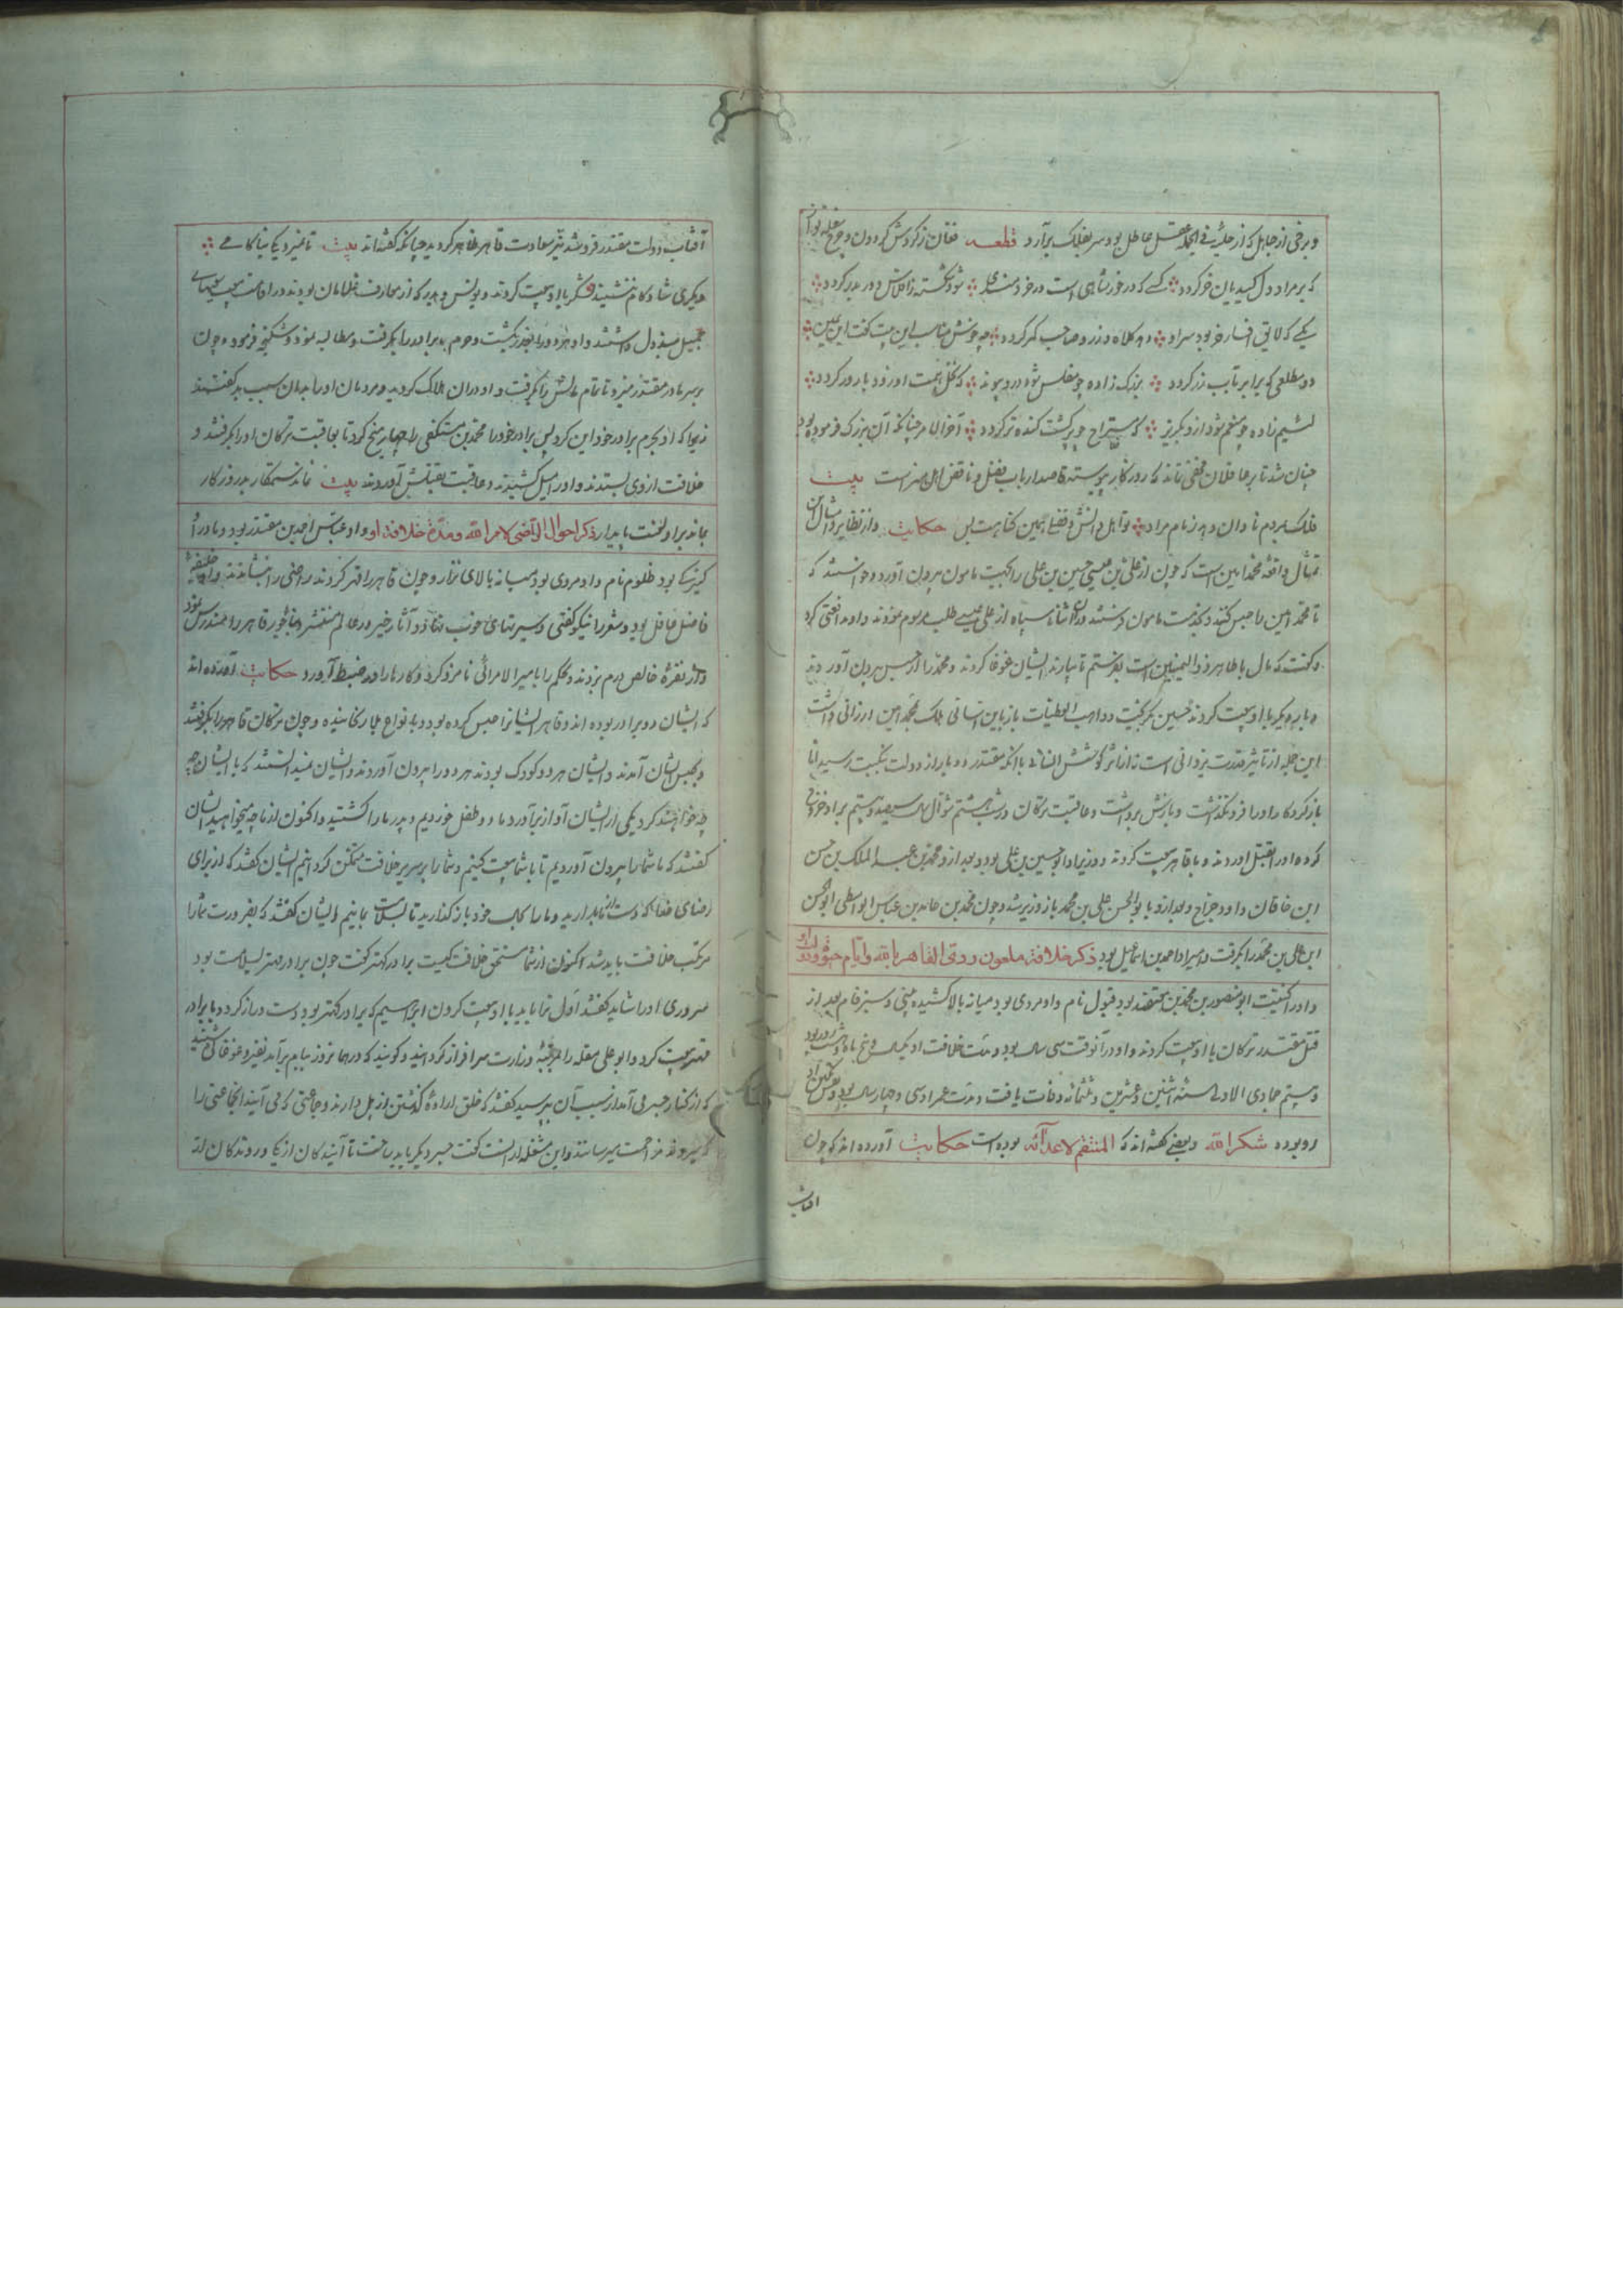 و برخی از جاهل که از حلیه فی الجمله عقل عاطل بود سر بفلک برآرد قطعه فغان ز گردش گردون و چرخ
که بر مراد دل کید یان خر گردد کسی که در خور شاهی است در خردمندی شود شکسته ز افلاس و در بدر گردد
یکی که لایق افسار خر بود سر او دهد کلاه و زر و صاحب کمر گردد چه خوش مناسب این بیت گفت ابن یمین
دو مطلعی که برابر بآب زر گردد بزرگ زاده چو مفلس شود درو پیوند که نخل همت او زود بارور گردد
لئیم زاده چو منعم شود ازو بگریز که مستراح چو پر گشت گنده تر گردد آخر الامر چنانکه آن بزرگ فرموده بود
چنان شد تا بر عاقلان مخفی نماند که روزگار پیوسته قاصد ارباب فضل و ناقض اهل هنر است بیت
فلک بمردم نادان دهد زمام مراد تو اهل دانش و فضلی همین گناهت بس حکایت و از نظایر و امثال این
تمثال واقعه محمد امین است که چون از علی بن عیسی حسین بن علی را بجهت مامون بیرون آورد و خواستند که
تا محمد امین را حبس کنند و بخدمت مامون فرستند در اثنا سپاه از علی عیسی طلب مرسوم نمودند و او مدافعتی کرد
و گفت که مال با طاهر ذو الیمینین است بفرستم تا بیارند ایشان غوغا کردند و محمد را از حبس بیرون آوردند
و بار دیگر با او بیعت کردند حسین بگریخت و واهب العطیات باز باین آسانی ملک بمحمد امین ارزانی داشت
این جمله از تاثیر قدرت یزدانی است نه از اثر کوشش انسانی با آنکه مقتدر دو بار از دولت بنکبت رسید اما
باز کردگار او را فرو نگذاشت و بازش برداشت و عاقبت ترکان در شب هشتم شوال سال سیصد و بیستم بر او خروج
کرده او را بقتل آوردند و با قاهر بیعت کردند و وزیر او ابو حسین بن علی بود و بعد از و محمد بن عبد الملک بن حسن
ابن خاقان و داود جراح و بعد ازو بابو الحسن علی بن محمد باز وزیر شد و چون محمد بن حامد بن عباس الواسطی ابو الحسن
ابن علی بن محمد را بگرفت و امیر او احمد بن اسماعیل بود ذکر خلافت ملعون ردی القاهر بالله و ایام حیوة و دولت او
و او را کنیت ابو منصور بن محمد بن معتضد بود قبول نام و او مردی بود میانه بالا کشیده بینی و سبز فام بعد از
قتل مقتدر ترکان با او بیعت کردند و او در آنوقت سی ساله بود و مدت خلافت او یکسال و پنج ماه و بیست روز بود
و بیستم جمادی الاولی سنه اثنین و عشرین و ثلثمائه وفات یافت و مدت عمر او سی و چهار سال بود و نقش نگین او
رو بوده شکر الله و بعضی گفته اند که المنتقم لاعدائه بوده است حکایت آورده اند که چون
آفتاب
آفتاب دولت مقتدر فرو شد نیر سعادت قاهر ظاهر گردید چنانکه گفته اند بیت تا نمیرد یکی بناکامی
دیگری شاد کام ننشیند لشکر با او بیعت کردند و یونس و بدر که از معارف غلامان بودند در اقامت بیعت سعیهای
جمیل مبذول داشتند و او هر دو را بغدر بکشت و حرم برادر را بگرفت و مطالبه نمود و شکنجه فرمود و چون
بر سر مادر مقتدر میزد تا تمام مالش را بگرفت و او در آن هلاک گردید و مردمان او را بدان سبب بد گفتند
زیرا که او بجرم برادر خود این کرد پس برادر خود را محمد بن مستکفی را چهار میخ کرد تا بعاقبت ترکان او را بگرفتند و
خلافت از وی بستدند و او را میل کشیدند و عاقبت بقتلش آوردند بیت نماند ستمکار بد روزگار
بماند برو لعنت پایدار ذکر احوال الراضی لامر الله و مدة خلافة او و او عباس احمد بن مقتدر بود و مادر او
کنیزکی بود ظلوم نام و او مردی بود میانه بالای نزار و چون قاهر را قهر کردند راضی را بنشاندند و او خلیفه
فاضل عاقل بود و شعر را نیکو گفتی و سیرتهای خوب نهاد و آثار خیر در عالم منتشر و بناء جور قاهر را مندرس نمود
و از نقره خالص درم بزدند و بجکم را بامیر الامرائی نامزد کرد و کارها را در ضبط آورد حکایت آورده اند
که ایشان دو برادر بوده اند و قاهر ایشانرا حبس کرده بود و بانواع بلا رنجانیده و چون ترکان قاهر را بگرفتند
و بحبس ایشان آمدند و ایشان هر دو کودک بودند هر دو را بیرون آوردند و ایشان نمیدانستند که با ایشان چه
چه خواهند کرد یکی از ایشان آواز برآورد ما دو طفل خردیم و پدر ما را کشتید و اکنون از ما چه میخواهید ایشان
گفتند که ما شما را بیرون آوردیم تا با شما بیعت کنیم و شما را بر سریر خلافت متمکن گردانیم ایشان گفتند که از برای
رضای خدا که دست از ما بدارید و ما را بحال خود باز گذارید تا بسلامت بمانیم ایشان گفتند که بضرورت شما را
مرتکب خلافت باید شد اکنون از شما مستحق خلافت کیست برادر کهتر گفت چون برادر مهتر بسلامت بود
سروری او را شاید گفتند اول ترا باید با او بیعت کردن ابراهیم که برادر کهتر بود دست دراز کرد و با برادر
مهتر بیعت کرد و ابو علی مقله را بمرتبه وزارت سرافراز گردانید و گویند که در همان روز ببام برآمد نفیر و غوغا شنید
که از کنار جسر می آمد از سبب آن بپرسید گفتند که خلق اراده گذشتن از پل دارند و جماعتی که می آیند آنجماعتی را
که میروند مزاحمت میرسانند و این مشغله از آنست گفت جسر دیگر باید ساخت تا آیندگان از یکی و روندگان از